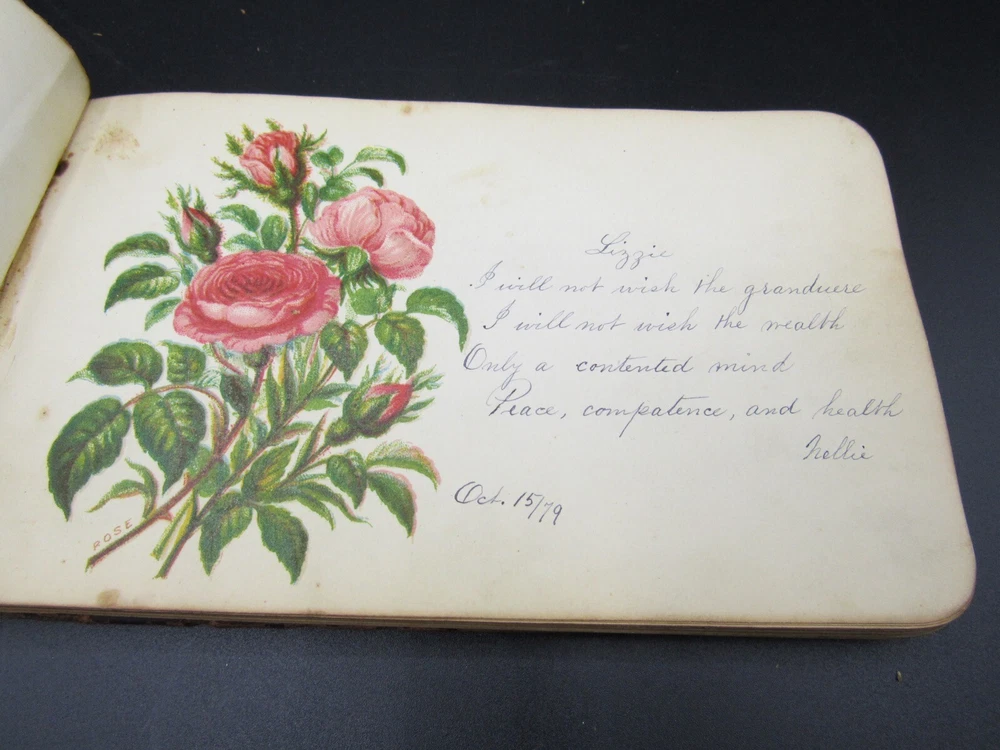 Lizzie
I will not wish the granduere
I will not wish the wealth
Only a contented mind
Peace, compatence, and health
Nellie
Oct. 15/79
ROSE